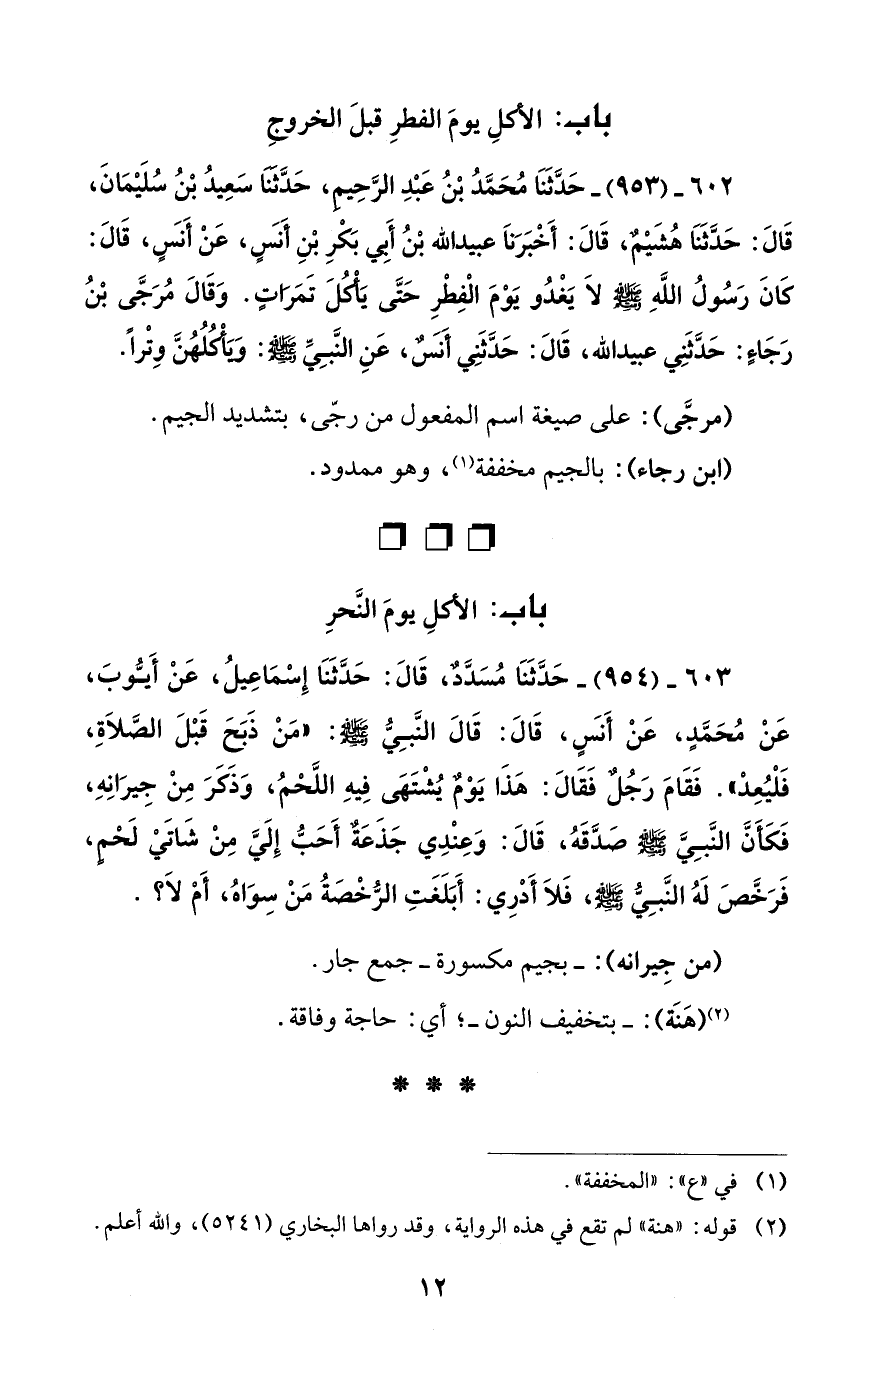 باب: الأكلِ يومَ الفطرِ قبلَ الخروجِ
٦٠٢ ـ (٩٥٣) ـ حَدَّثَنَا مُحَمَّدُ بْنُ عَبْدِ الرَّحِيمِ، حَدَّثَنَا سَعِيدُ بْنُ سُلَيْمَانَ،
قَالَ: حَدَّثَنَا هُشَيْمٌ، قَالَ: أَخْبَرَنَا عبيدالله بْنُ أَبِي بَكْرِ بْنِ أَنَسٍ، عَنْ أَنَسٍ، قَالَ:
كَانَ رَسُولُ اللَّهِ ﷺ لاَ يَغْدُو يَوْمَ الْفِطْرِ حَتَّى يَأْكُلَ تَمَرَاتٍ. وَقَالَ مُرَجَّى بْنُ
رَجَاءٍ: حَدَّثَنِي عبيدالله، قَالَ: حَدَّثَنِي أَنَسٌ، عَنِ النَّبِيِّ ﷺ: وَيَأْكُلُهُنَّ وِتْراً.
(مرجَّى): على صيغة اسم المفعول من رجّى، بتشديد الجيم.
(ابن رجاء): بالجيم مخففة(١)، وهو ممدود.
باب: الأكلِ يومَ النَّحرِ
٦٠٣ ـ (٩٥٤) ـ حَدَّثَنَا مُسَدَّدٌ، قَالَ: حَدَّثَنَا إِسْمَاعِيلُ، عَنْ أَيُّوبَ،
عَنْ مُحَمَّدٍ، عَنْ أَنَسٍ، قَالَ: قَالَ النَّبِيُّ ﷺ: «مَنْ ذَبَحَ قَبْلَ الصَّلاَةِ،
فَلْيُعِدْ». فَقَامَ رَجُلٌ فَقَالَ: هَذَا يَوْمٌ يُشْتَهَى فِيهِ اللَّحْمُ، وَذَكَرَ مِنْ جِيرَانِهِ،
فَكَأَنَّ النَّبِيَّ ﷺ صَدَّقَهُ، قَالَ: وَعِنْدِي جَذَعَةٌ أَحَبُّ إِلَيَّ مِنْ شَاتَيْ لَحْمٍ،
فَرَخَّصَ لَهُ النَّبِيُّ ﷺ، فَلاَ أَدْرِي: أَبَلَغَتِ الرُّخْصَةُ مَنْ سِوَاهُ، أَمْ لاَ؟ .
(من جِيرانه): ـ بجيم مكسورة ـ جمع جار.
(٢)(هَنَة): ـ بتخفيف النون ـ؛ أي: حاجة وفاقة.
* * *
(١) في «ع»: «المخففة».
(٢) قوله: «هنة» لم تقع في هذه الرواية، وقد رواها البخاري (٥٢٤١)، والله أعلم.
١٢